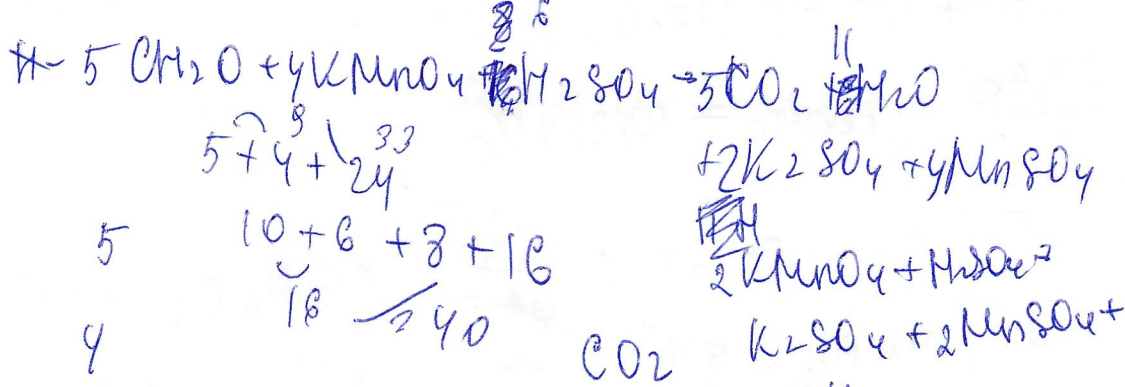 8 6
5 CH2O + 4KMnO4 + H2SO4 → 5CO2 + H2O
11
5 + 4 + 24
9 33
+2K2SO4 + 4MnSO4
5 10 + 6 + 8 + 16
2KMnO4 + H2SO4 →
16 40
4 CO2 K2SO4 + 2MnSO4 +